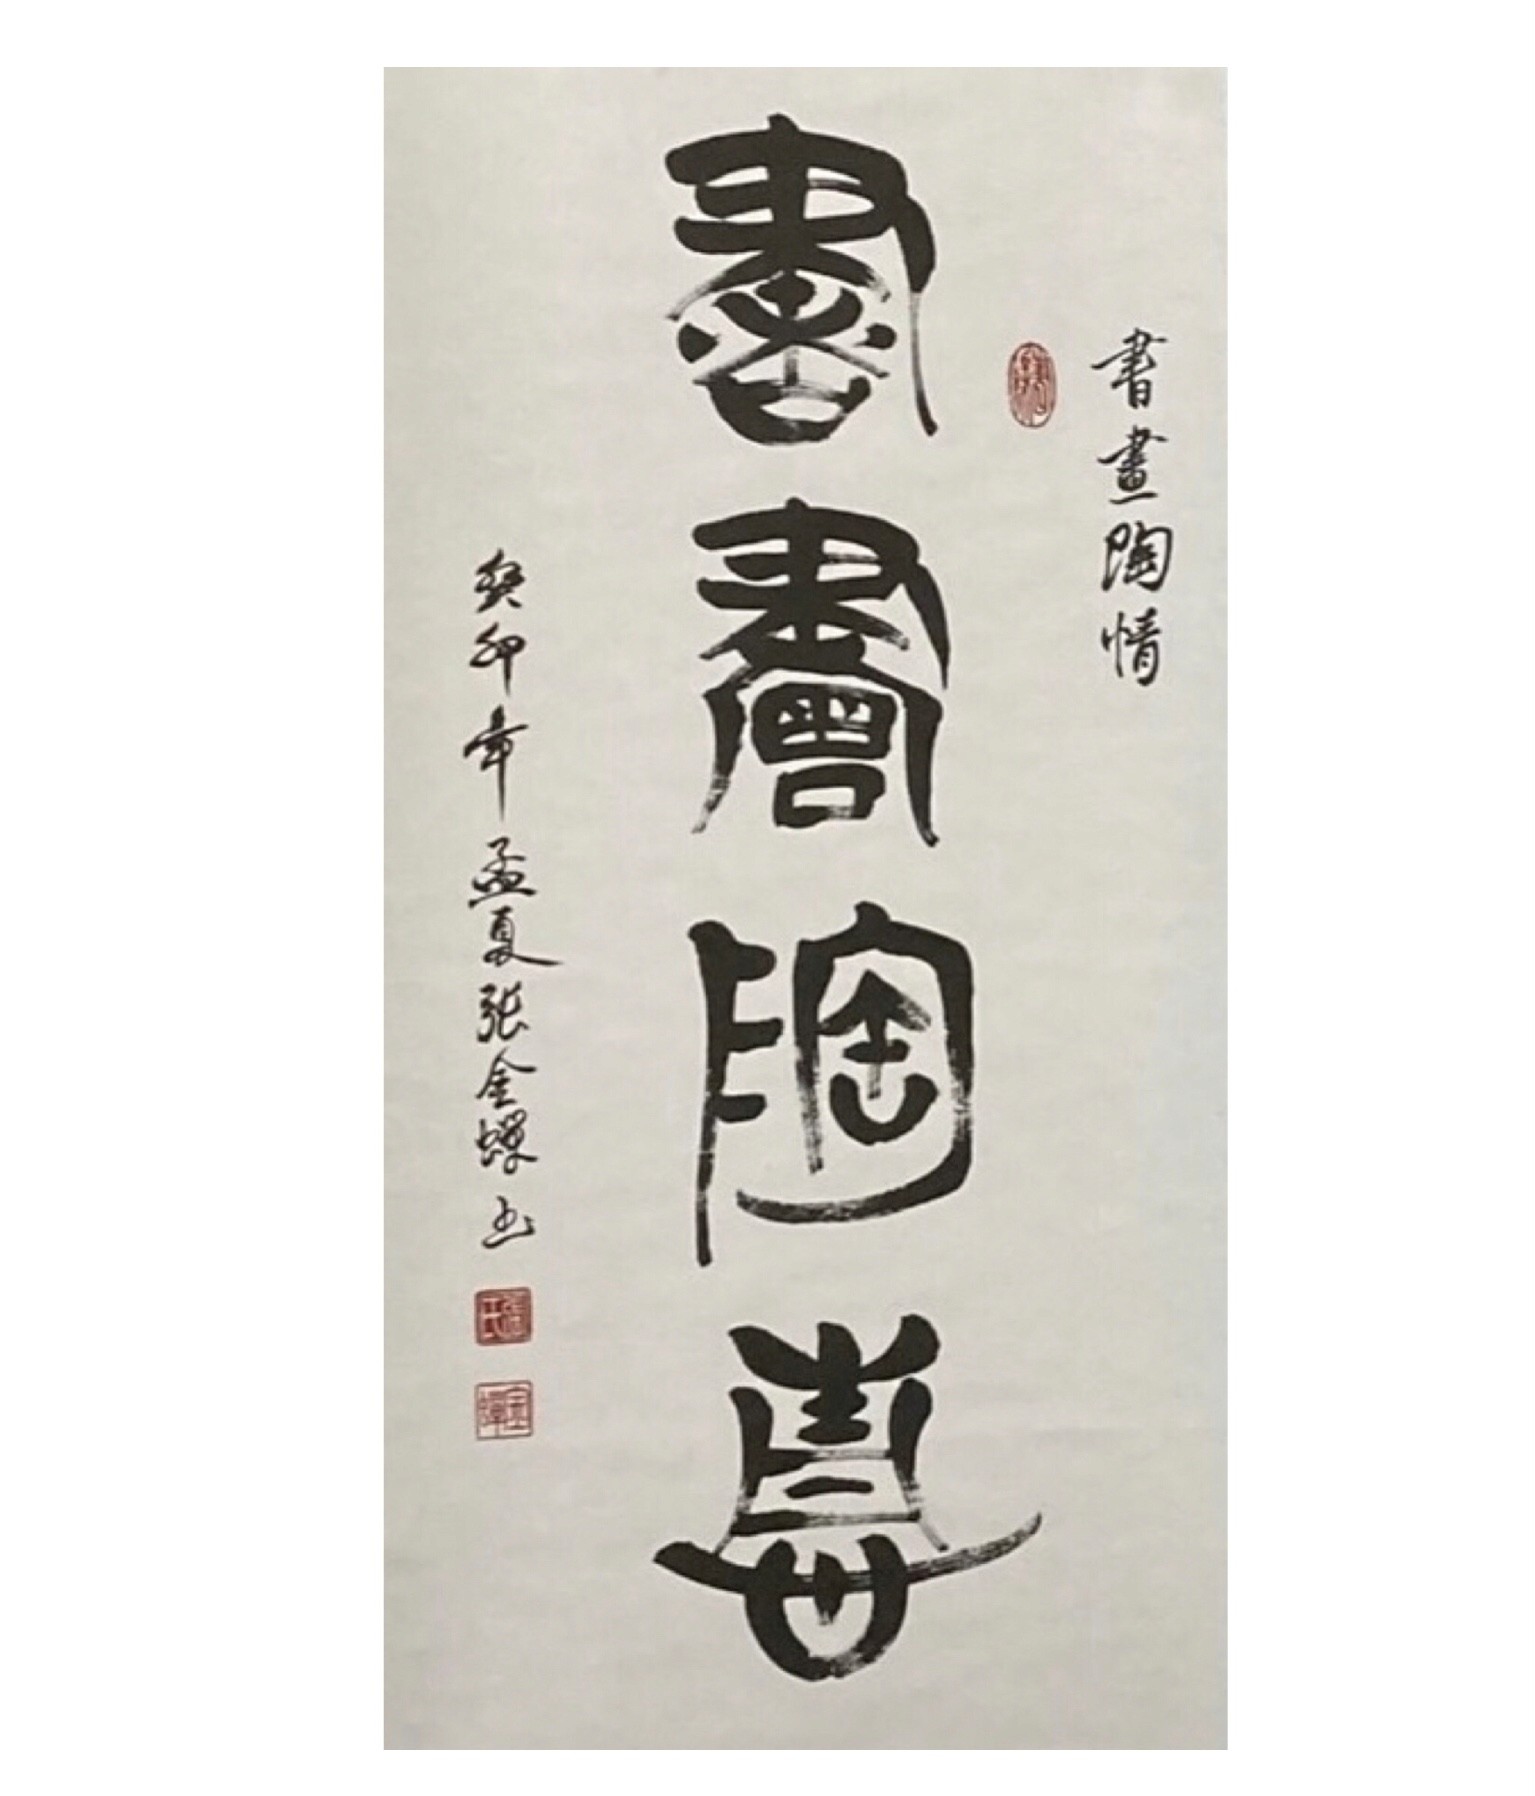 書畫陶情
書畫陶情
癸卯年孟夏张金蝶书